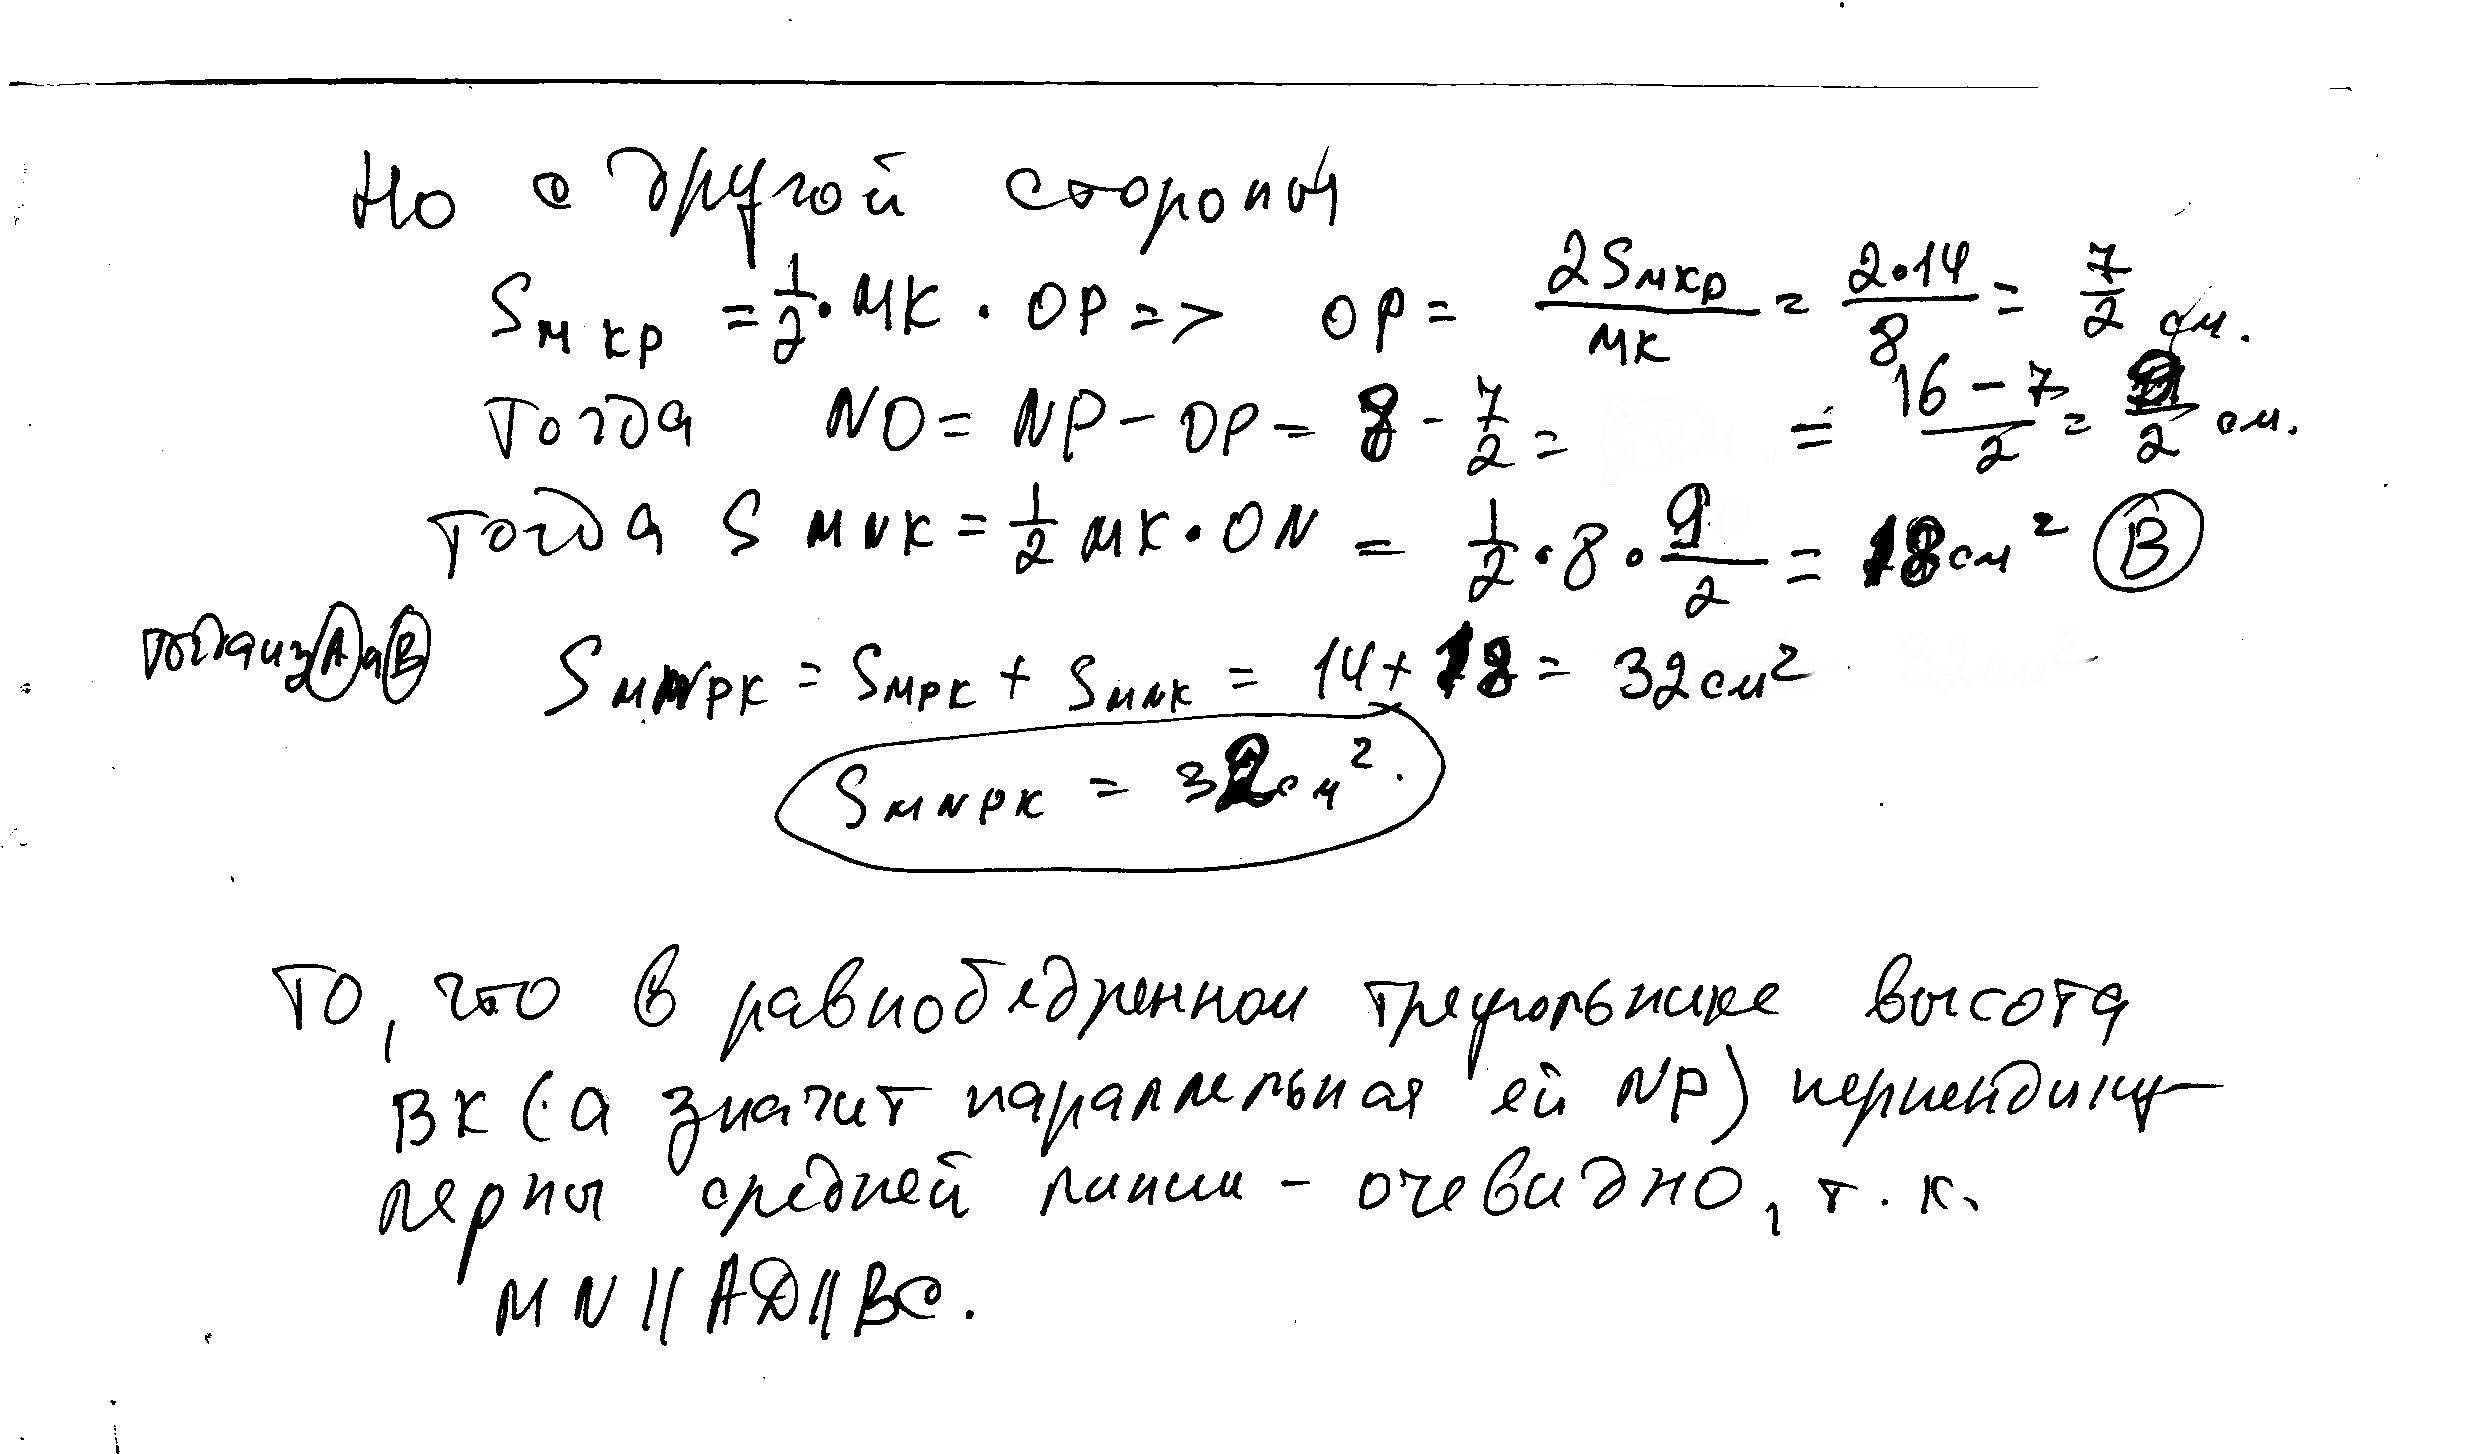 Но с другой стороны
S мкр = 1/2 · МК · ОР => ОР = 2Sмкр/МК = 2·14/8 = 7/2 см.
Тогда NO = NP - OP = 8 - 7/2 = = 16-7/2 = 9/2 см.
Тогда S MNK = 1/2 МК · ON = 1/2 · 8 · 9/2 = 18 см² (B)
Тогда из (A) и (B) S MNPK = S MPK + S MNK = 14 + 18 = 32 см²
S MNPK = 32 см².
То, что в равнобедренном треугольнике высота
ВК (а значит параллельная ей NP) перпендику-
лярны средней линии - очевидно, т.к.
MN || AD || BC.